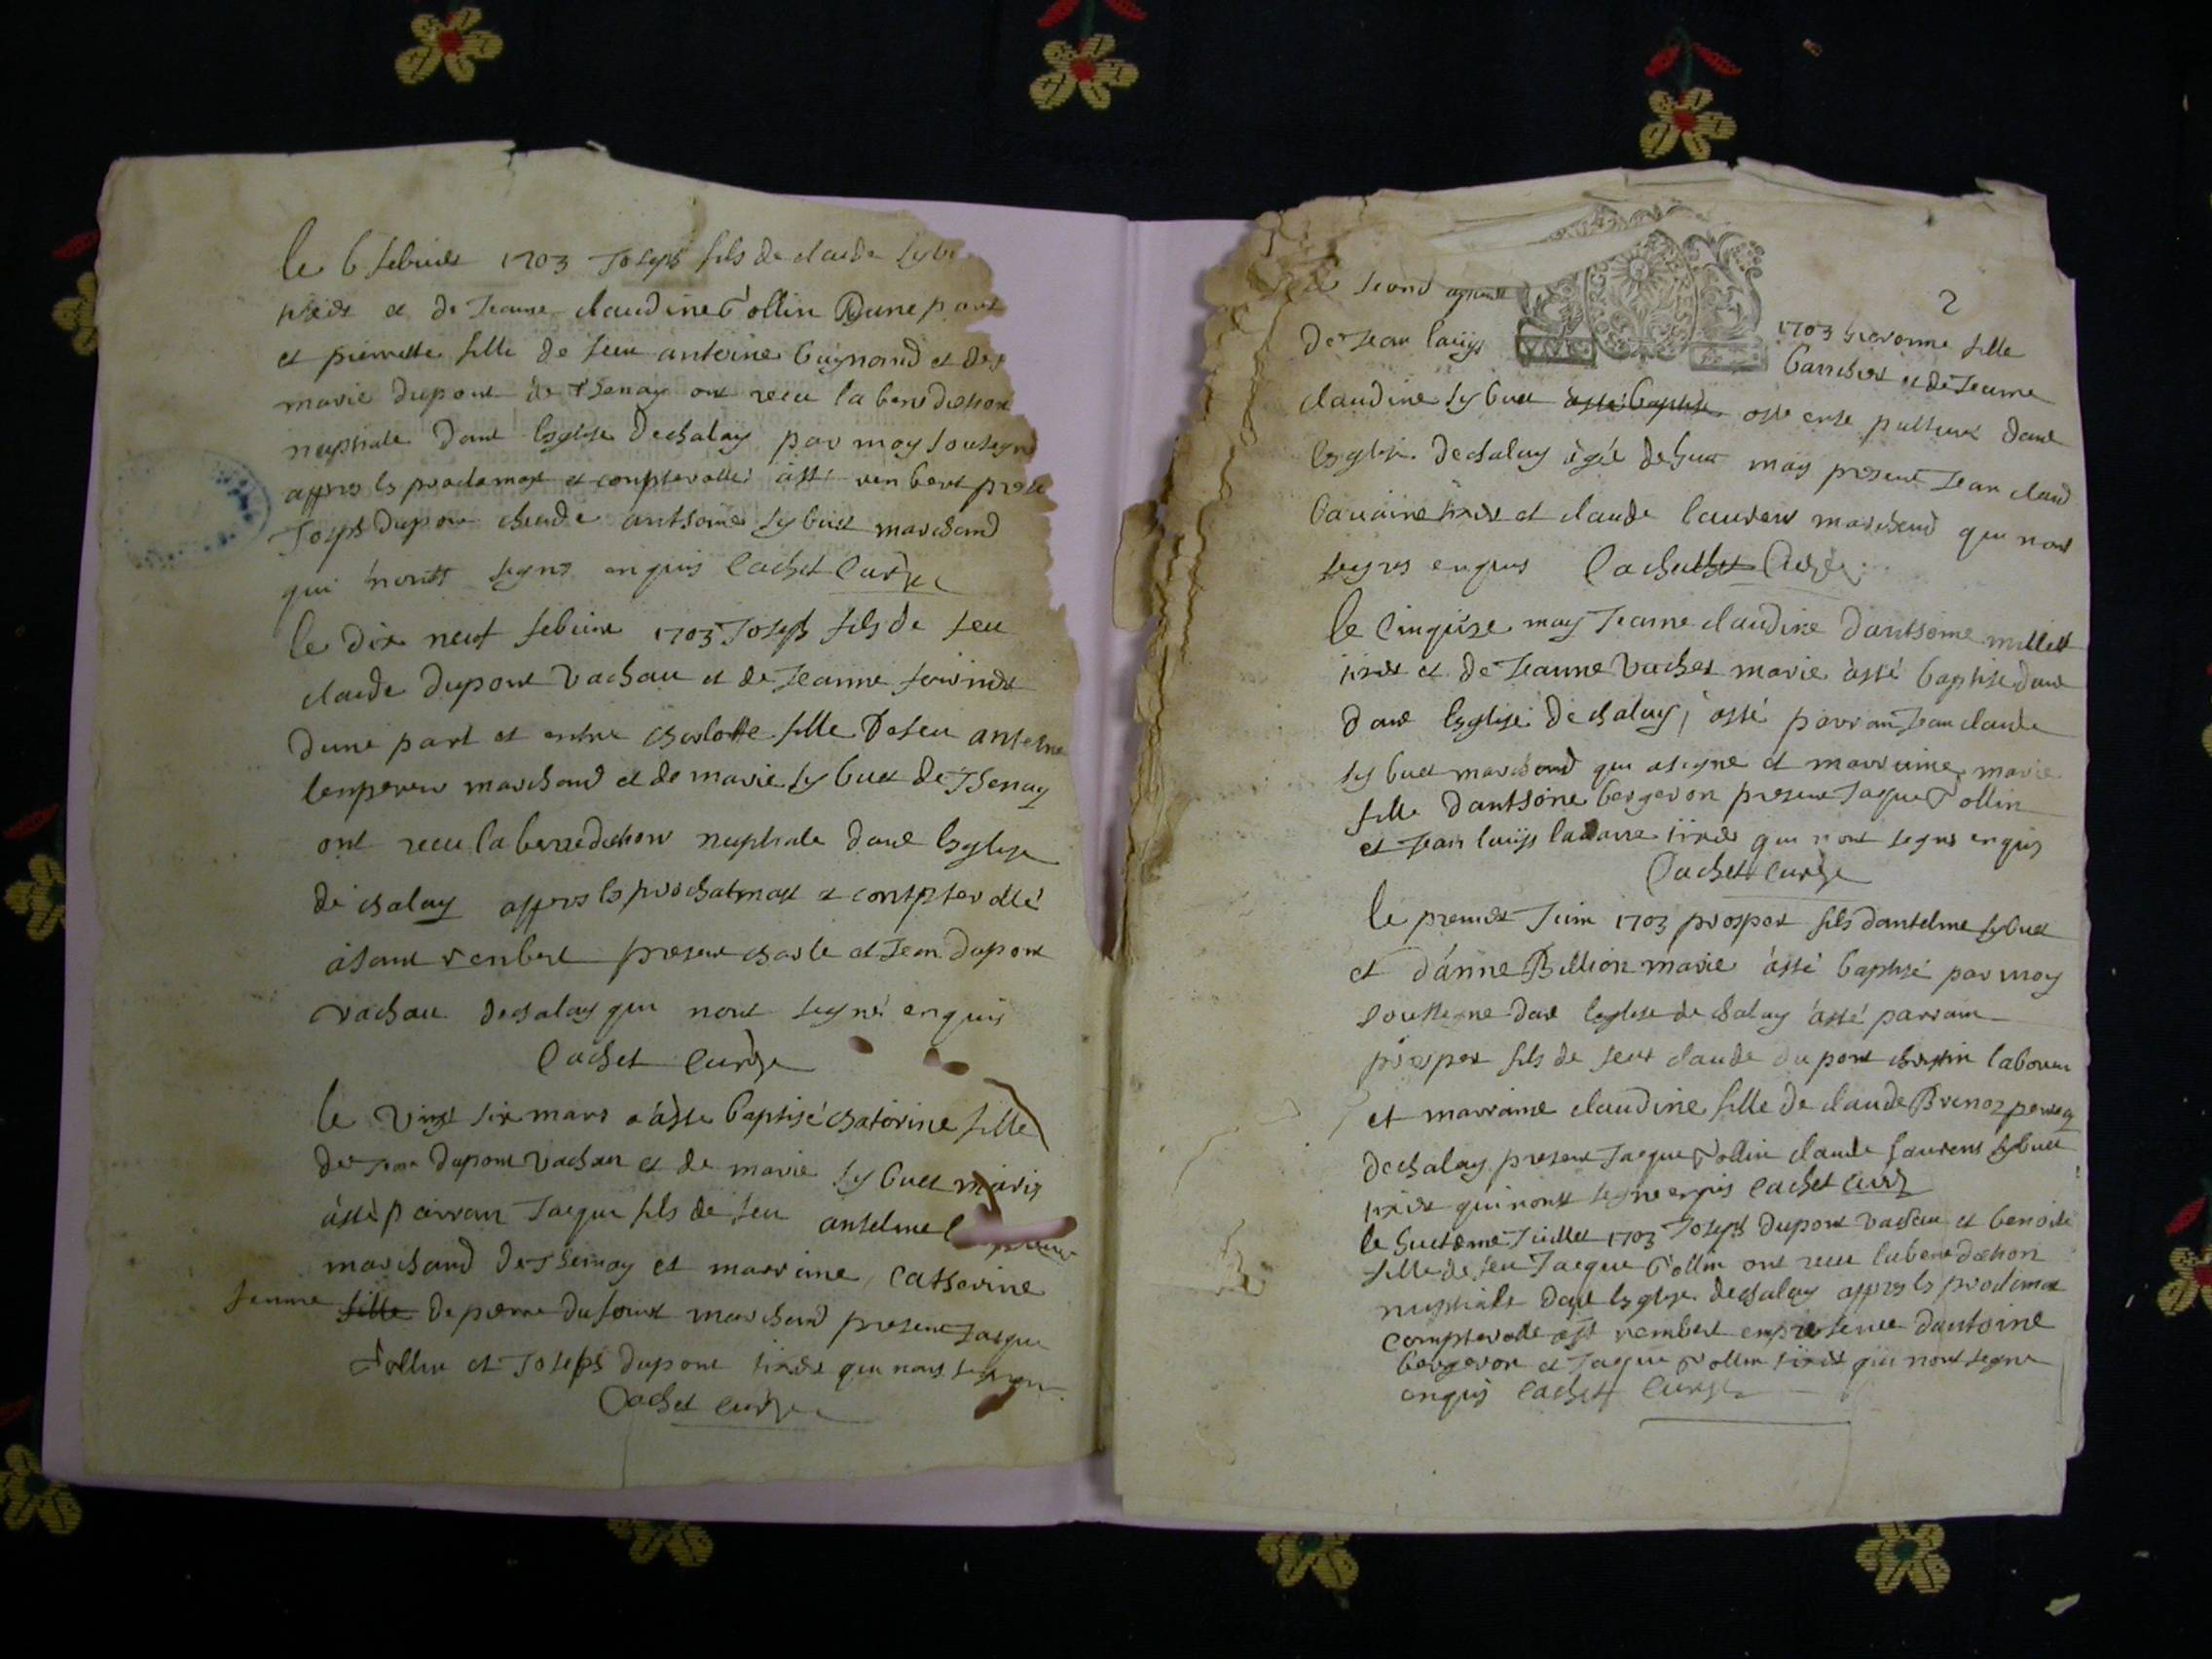 le 6 febvier 1703 Joseph fils de claude sybu
tixier et de Jeanne claudine Tollin Dune part
et pierrette fille de feu antoine Guynand et de
marie dupont de Thenay ont receu la benediction
nuptiale dans leglise dechalay par moy soutsigné
appres ls proclamat et compterollé asté rembert presen
Joseph Dupon claude anthoine sybuet marchand
qui nontt segnes enquis Cachet Curé
le dix neuf febvier 1703 Joseph fils de feu
claude dupont vachau et de Jeanne
dune part et entre charlotte fille De feu antelme
lempereur marchand et de marie sybuet de Thenay
ont receu la benediction nuptiale dans leglise
de chalay appres ls prochatmast et contpterollé
a sant rembert present charle et Jean dupont
vachau dechalay qui nont segné enquis
Cachet Curé
le vingt six mars a asté baptisé chaterine fille
de Jean dupont vachau et de marie sybuet mariés
asté parrain Jaque fils de feu antelme
marchand de Thenay et marraine Catherine
femme fille de pierre dufour marchand present Jacque
Tollin et Joseph dupont tixier qui nons segnes
Cachet curé
2
le second
1703 fille
de Jean louys Barichet et de Jeanne
claudine sybuet asté baptisé asté enseputturé dans
leglise dechalay agée de huit moy present Jean claud
tixier et claude lauren marchand qui nont
segnes enquis Cachet Curé
le Cinquise may Jeanne claudine danthoine millet
tixier et de Jeanne vachet marie asté baptisé dans
dans leglise de chalay, asté parrain Jean claude
sybuet marchand qui asegne et marraine marie
fille danthoine bergeron present Jaque Tollin
et Jean louys tixier qui nont segnes enquis
Cachet curé
le premier Juin 1703 prosper fils dantelme sybuet
et danne Billion marie asté baptisé par moy
soutsegne dans leglise de chalay asté parrain
prosper fils de feu claude du pont laboureu
et marraine claudine fille de claude
dechalay present Jacque Tollin claude laurens sybuet
tixier qui nont segne enquis Cachet Curé
le huitieme Juillet 1703 Joseph dupont vachau et benoite
fille de feu Jacque Tollin ont receu la benediction
nuptiale dans leglise dechalay appres ls proclamat
compterollé ast rembert en presence dantoine
bergeron et Jaque Tollin tixier qui nont segne
enquis Cachet Curé